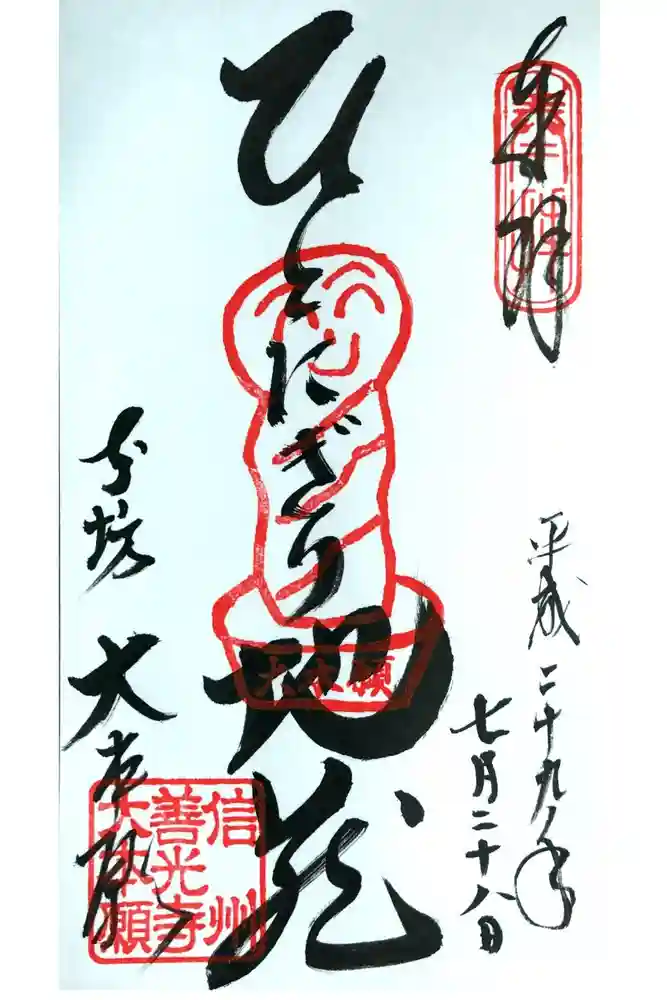 奉拝
奉拝
平成二十九年
七月二十八日
ひとにぎり地蔵
大本願
大本願
信州
善光寺
大本願